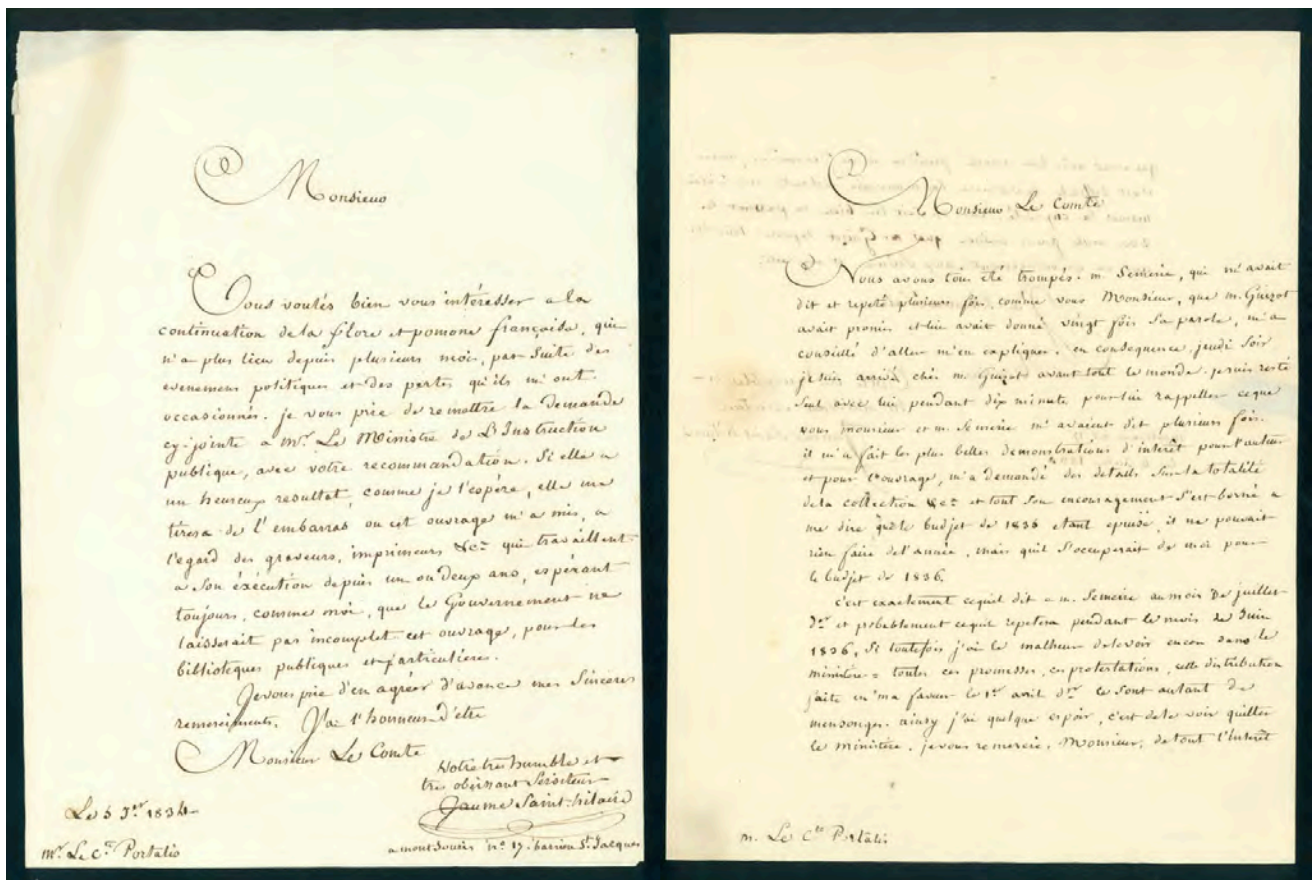 Monsieur
Vous voulés bien vous intéresser a la
continuation de la flore et pomone françaises, qui
n'a plus lieu depuis plusieurs mois, par suite des
evenemens politiques et des pertes qu'ils m'ont
occasionnés. je vous prie de remettre la demande
cy-jointe a Mr. Le Ministre de L'Instruction
publique, avec votre recommandation. Si elle a
un heureux resultat, comme je l'espére, elle me
tirera de l'embarras ou cet ouvrage m'a mis, a
l'egard des graveurs, imprimeurs &ca qui travaillent
a son éxécution depuis un ou deux ans, espérant
toujours, comme moi, que le Gouvernement ne
laisserait pas incomplet cet ouvrage, pour les
biblioteques publiques et particulieres.
Je vous prie d'en agréer d'avance mes sincères
remerciments. J'ai l'honneur d'etre
Monsieur Le Comte
Votre tres humble et
tres obeissant Serviteur
Jaume Saint-hilaire
Le 5 1834
Mr. Le Cte Portalis
a mont Souris no 17. barriere St. Jacques
Monsieur Le Comte
Nous avons tous été trompés. m. Semerie, qui m'avait
dit et repeté plusieurs fois, comme vous Monsieur, que m. Guizot
avait promis et lui avait donné vingt fois sa parole, m'a
conseillé d'aller m'en expliquer. en consequence, jeudi soir
je suis arrivé chés m. Guizot avant tout le monde. je suis resté
seul avec lui pendant dix minute pour lui rappeller ce que
vous monsieur et m. Semerie m'avaient dit plusieurs fois.
il m'a fait les plus belles demonstrations d'interêt pour l'auteur
et pour l'ouvrage, m'a demandé des details sur la totalité
de la collection &ca et tout son encouragement s'est borné a
me dire que le budjet de 1835 etant epuisé, il ne pouvait
rien faire de l'année, mais qu'il s'occuperait de moi pour
le budjet de 1836.
c'est exactement ce qu'il dit a m. Semerie au mois de juillet
dr et probablement ce qu'il repetera pendant le mois de Juin
1836, si toutefois j'ai le malheur de le voir encore dans le
ministère = toutes ces promesses, ces protestations, cette distribution
faite en ma faveur le 1er avril dr ce sont autant de
mensonges. ainsy j'ai quelque espoir, c'est de le voir quitter
le ministère. je vous remercie, Monsieur, de tout l'interêt
m. Le Cte Portalis